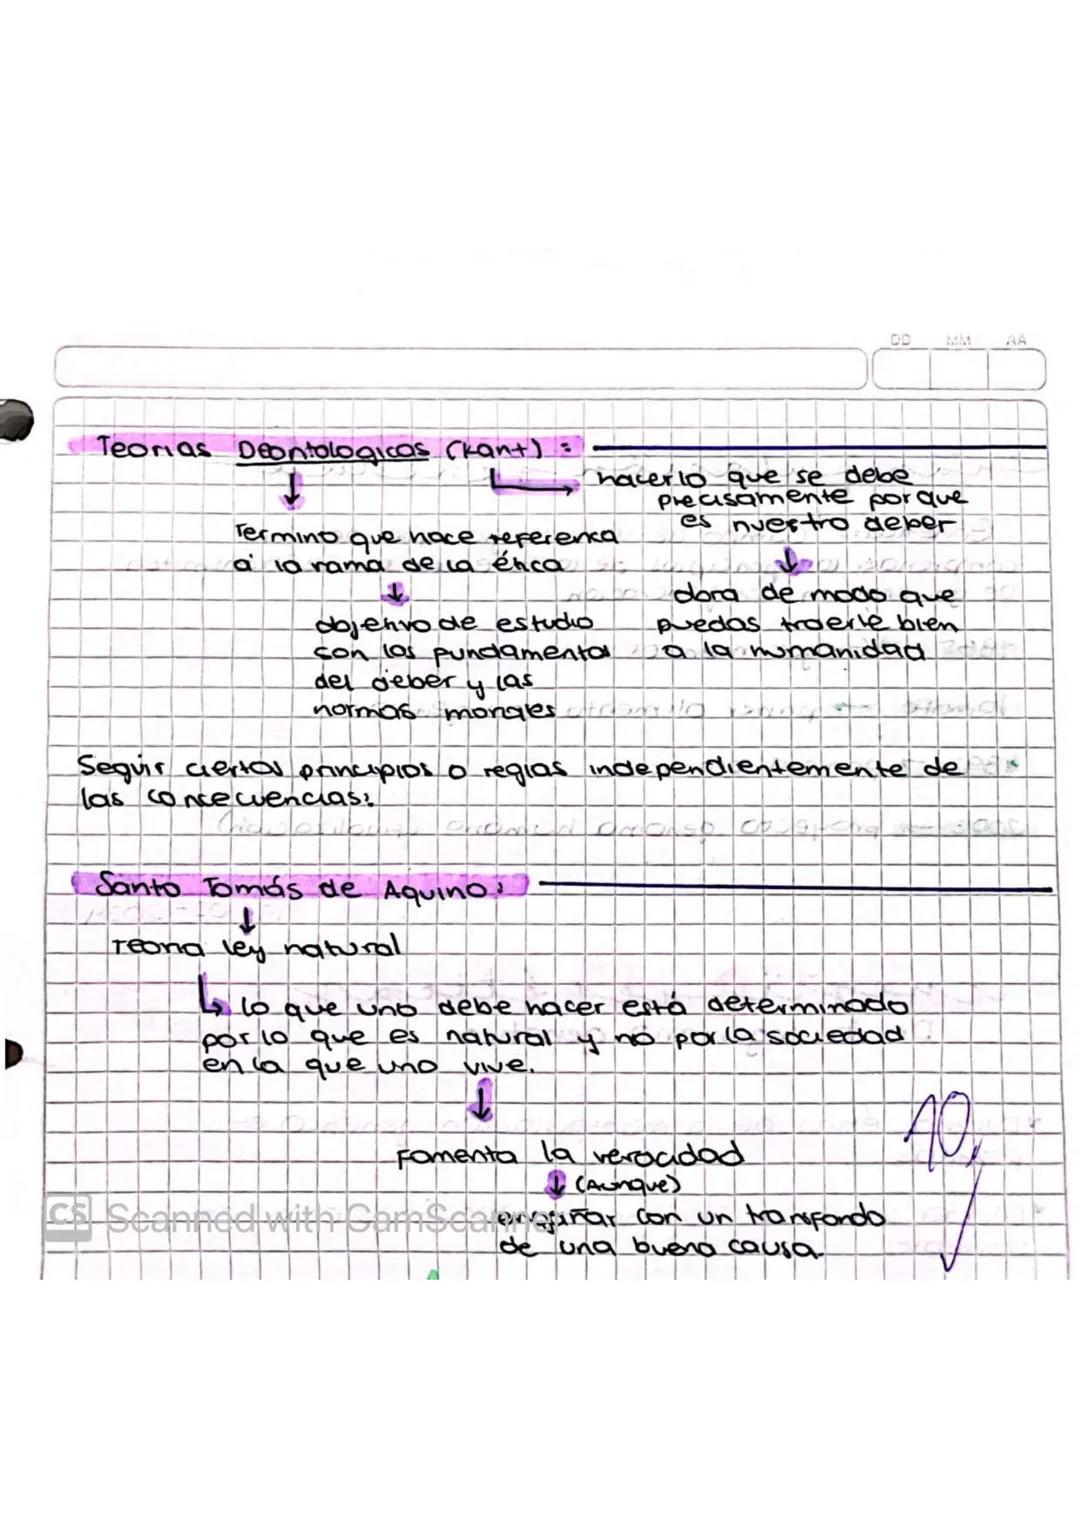 DD MM AA
Teorias Deontologicas (Kant) :
hacer lo que se debe
precisamente porque
es nuestro deber
Termino que hace referenca
a la rama de la ética
obra de modo que
puedas traerle bien
a la humanidad
objetivo de estudio
son los fundamentos
del deber y las
normas morales
Seguir ciertos principios o reglas independientemente de
las concecuencias.
Santo Tomás de Aquino:
Teoria ley natural
lo que uno debe hacer está determinado
por lo que es natural y no por la sociedad
en la que uno vive.
Fomenta la veracidad
(Aunque)
engañar con un transfondo
de una buena causa.
10
CS Scanned with CamScanner